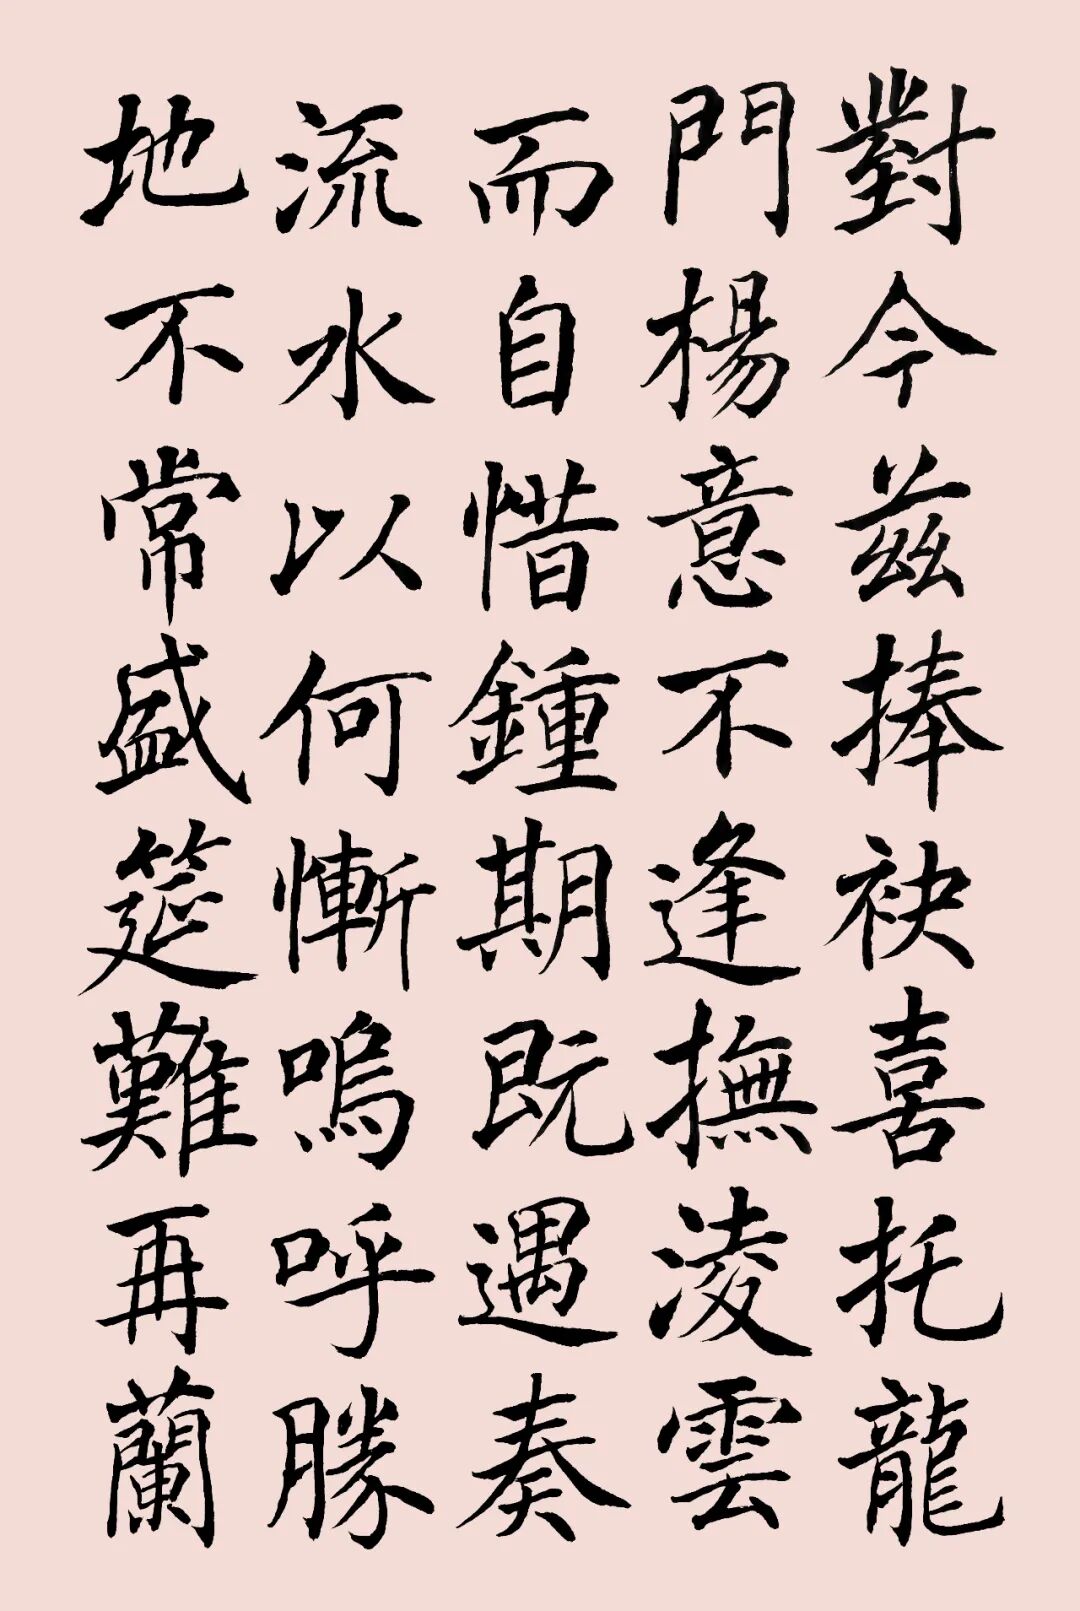 對今兹捧袂喜托龍
門楊意不逢撫凌雲
而自惜鍾期既遇奏
流水以何慚嗚呼勝
地不常盛筵難再蘭